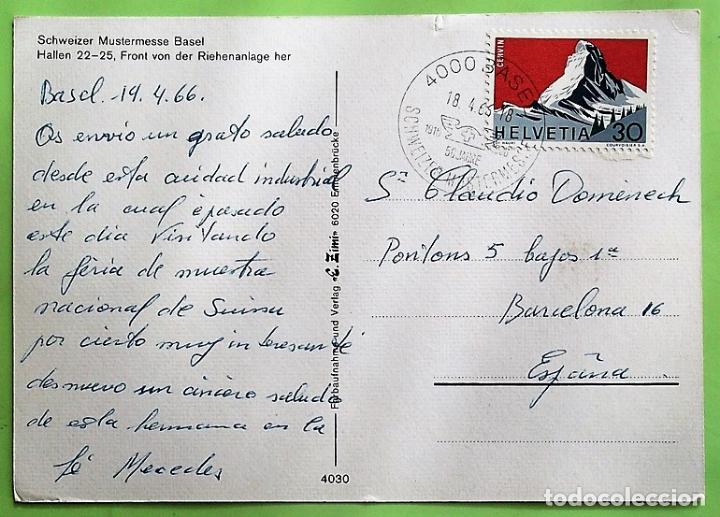 Schweizer Mustermesse Basel
Hallen 22-25, Front von der Riehenanlage her
Basel. 19.4.66.
Os envio un grato saludo
desde esta ciudad industrial
en la cual e pasado
este dia visitando
la féria de muestra
nacional de Suiza
por cierto muy interesante
des nuevo un sincero saludo
de esta hermana en la
fé Mercedes
Farbaufnahme und Verlag «E. Zimi» 6020 Emmenbrücke
4030
4000 BASEL
18.4.66-18
SCHWEIZER MUSTERMESSE
1916
50 JAHRE
CERVIN
HELVETIA 30
COURVOISIER S.A.
Sr Claudio Domènech
Pontons 5 bajos 1ª
Barcelona 16
España
todocoleccion